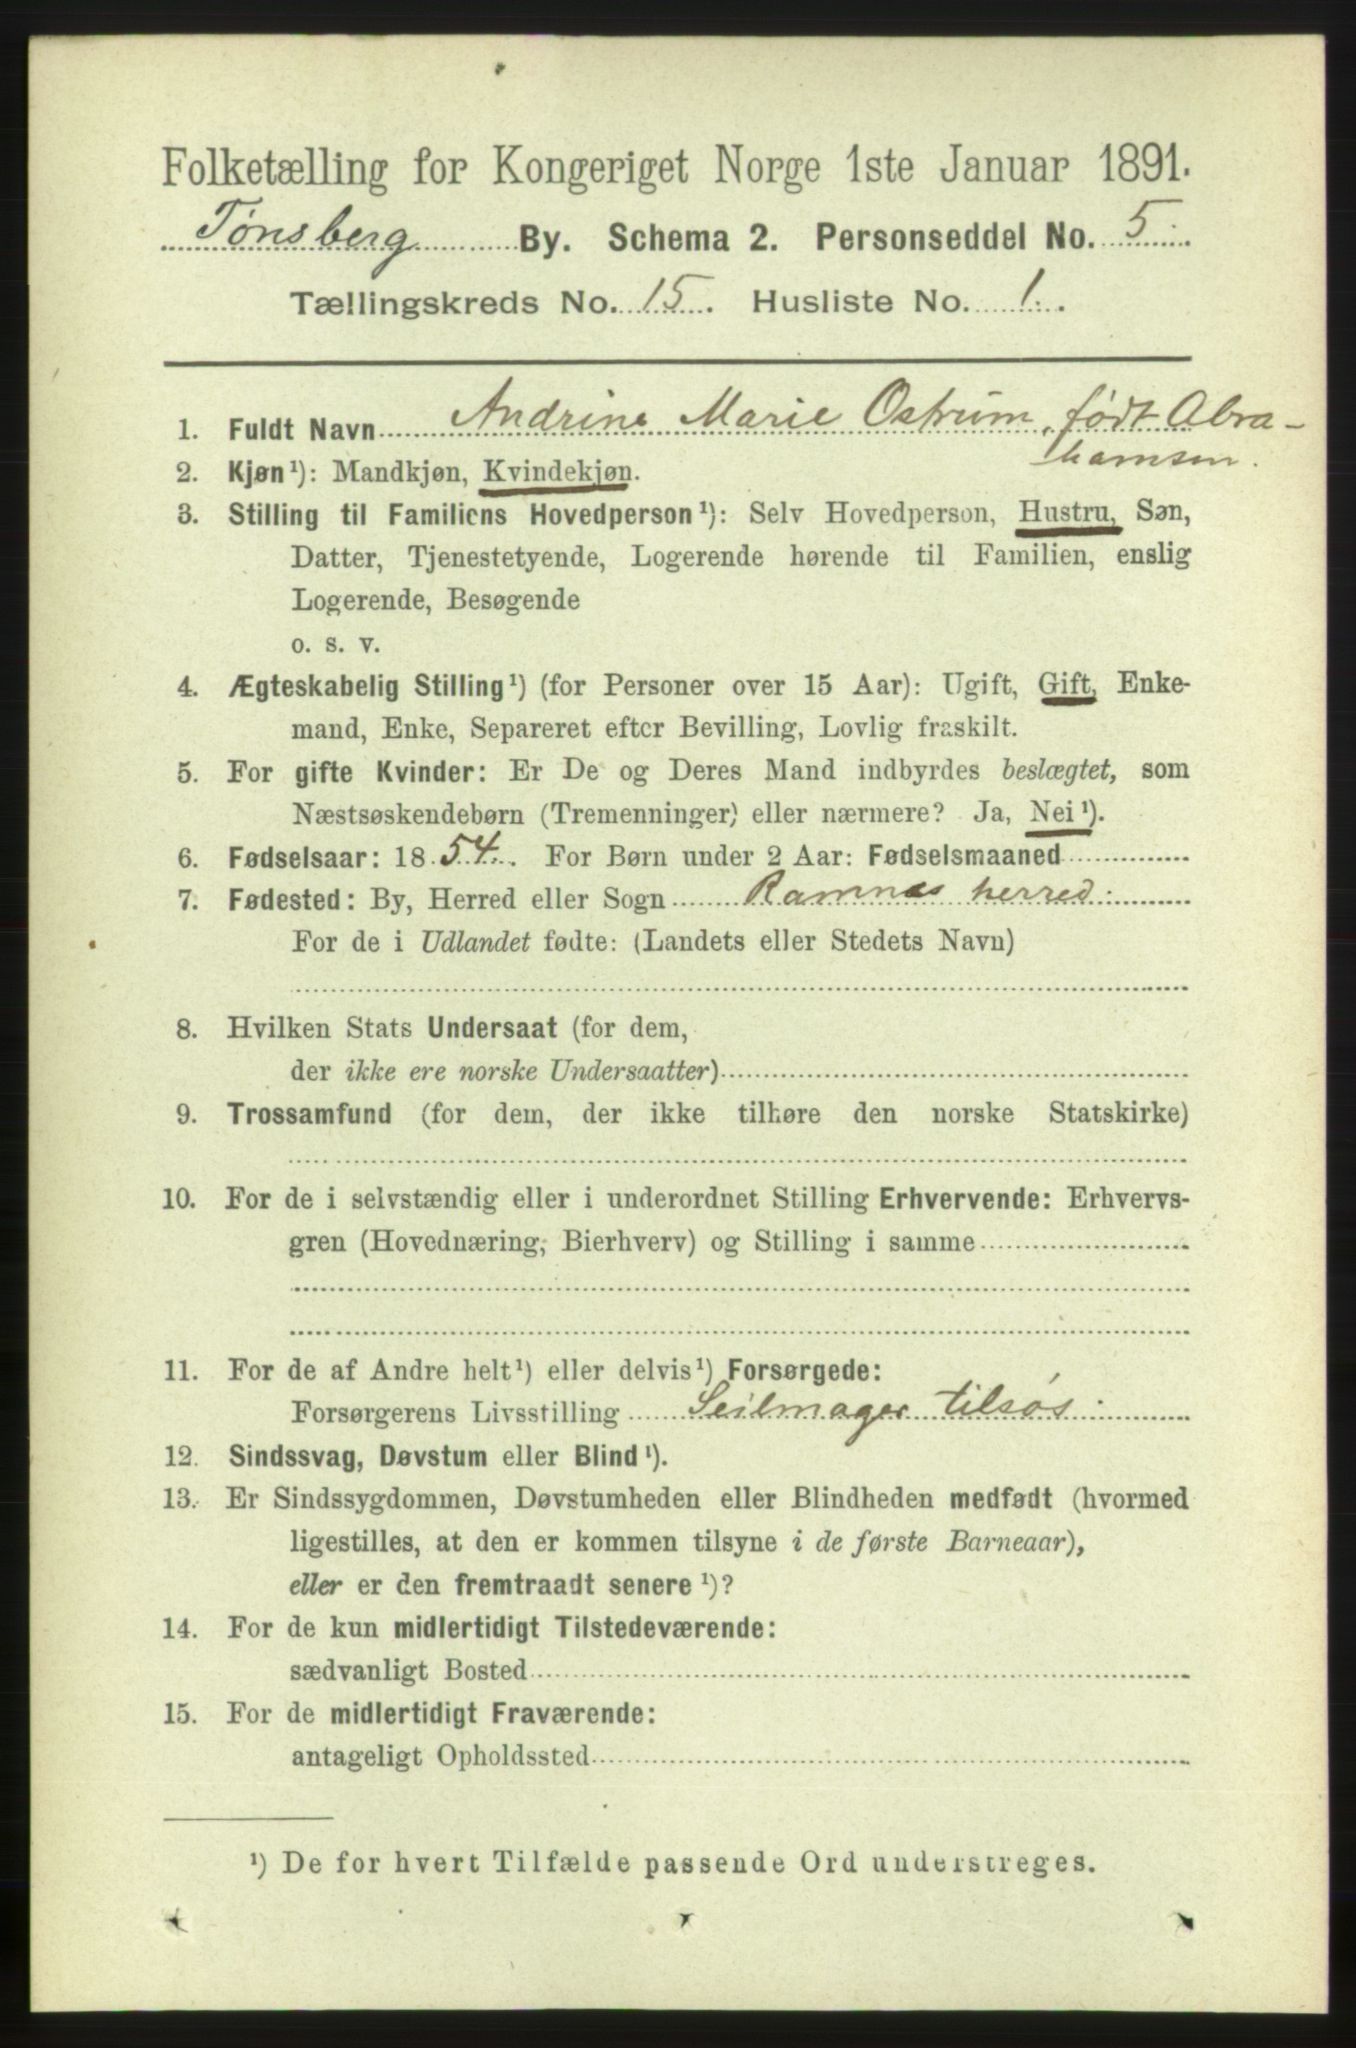 Folketælling for Kongeriget Norge 1ste Januar 1891.
Tønsberg By. Schema 2. Personseddel No. 5.
Tællingskreds No. 15. Husliste No. 1.
1. Fuldt Navn Andrine Marie Ostrum, født Abra-
hamsen.
2. Kjøn¹): Mandkjøn, Kvindekjøn.
3. Stilling til Familiens Hovedperson¹): Selv Hovedperson, Hustru, Søn,
Datter, Tjenestetyende, Logerende hørende til Familien, enslig
Logerende, Besøgende
o. s. v.
4. Ægteskabelig Stilling¹) (for Personer over 15 Aar): Ugift, Gift, Enke-
mand, Enke, Separeret efter Bevilling, Lovlig fraskilt.
5. For gifte Kvinder: Er De og Deres Mand indbyrdes beslægtet, som
Næstsøskendebørn (Tremenninger) eller nærmere? Ja, Nei¹).
6. Fødselsaar: 1854. For Børn under 2 Aar: Fødselsmaaned
7. Fødested: By, Herred eller Sogn Ramnæs herred.
For de i Udlandet fødte: (Landets eller Stedets Navn)
8. Hvilken Stats Undersaat (for dem,
der ikke ere norske Undersaatter)
9. Trossamfund (for dem, der ikke tilhøre den norske Statskirke)
10. For de i selvstændig eller i underordnet Stilling Erhvervende: Erhvervs-
gren (Hovednæring, Bierhverv) og Stilling i samme
11. For de af Andre helt¹) eller delvis¹) Forsørgede:
Forsørgerens Livsstilling Seilmager tilsøs
12. Sindssvag, Døvstum eller Blind¹).
13. Er Sindssygdommen, Døvstumheden eller Blindheden medfødt (hvormed
ligestilles, at den er kommen tilsyne i de første Barneaar),
eller er den fremtraadt senere¹)?
14. For de kun midlertidigt Tilstedeværende:
sædvanligt Bosted
15. For de midlertidigt Fraværende:
antageligt Opholdssted
¹) De for hvert Tilfælde passende Ord understreges.